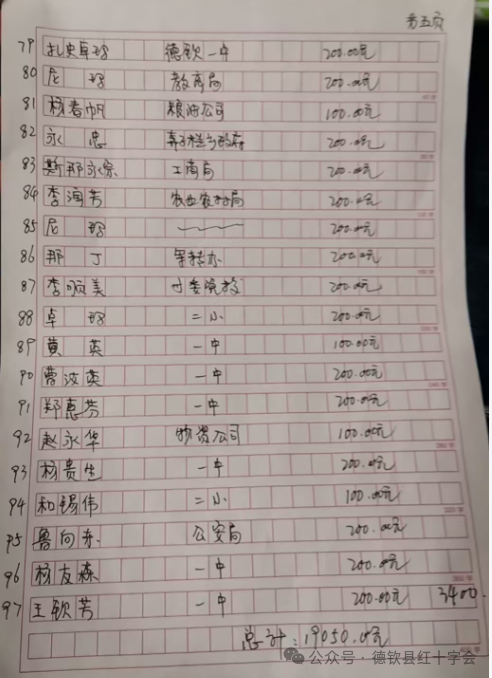 第五页
79 扎史卓玛 德钦一中 200.00元
80 尼玛 教育局 200.00元
81 杨春帆 粮油公司 100.00元
82 永忠 奔子栏乡政府 200.00元
83 斯那永宗 工商局 200.00元
84 李润芳 农业农村局 200.00元
85 尼玛 200.00元
86 那丁 200.00元
87 李顺美 200.00元
88 卓玛 二小 200.00元
89 黄英 一中 100.00元
90 曹波英 一中 200.00元
91 郑惠芳 一中 200.00元
92 赵永华 物资公司 100.00元
93 杨贵生 一中 200.00元
94 和锡伟 二小 100.00元
95 鲁向东 公安局 200.00元
96 杨友森 一中 200.00元
97 王钦芳 一中 200.00元 3400
总计：19050.00元
公众号·德钦县红十字会